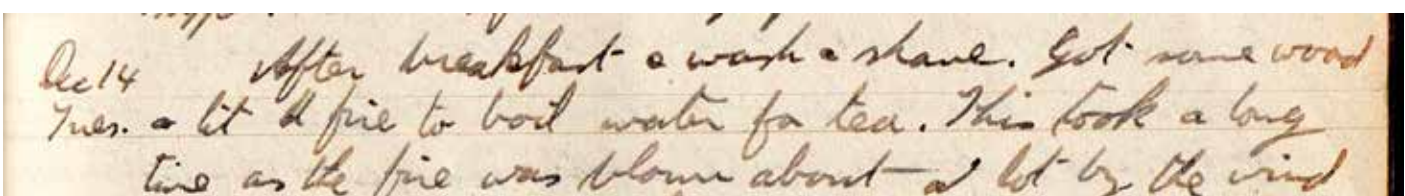 Dec 14 After breakfast a wash & shave. Got some wood
Tues. & lit a fire to boil water for tea. This took a long
time as the fire was blown about a lot by the wind